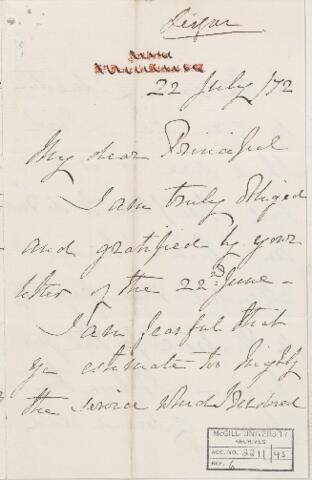 Lisgar
22 July /72
My dear Principal
I am truly obliged
and gratified by your
letter of the 22nd June -
I am fearful that
ye estimate too highly
the service which I rendered
McGILL UNIVERSITY
ARCHIVES
ACC. NO. 2211/95
REF. 6